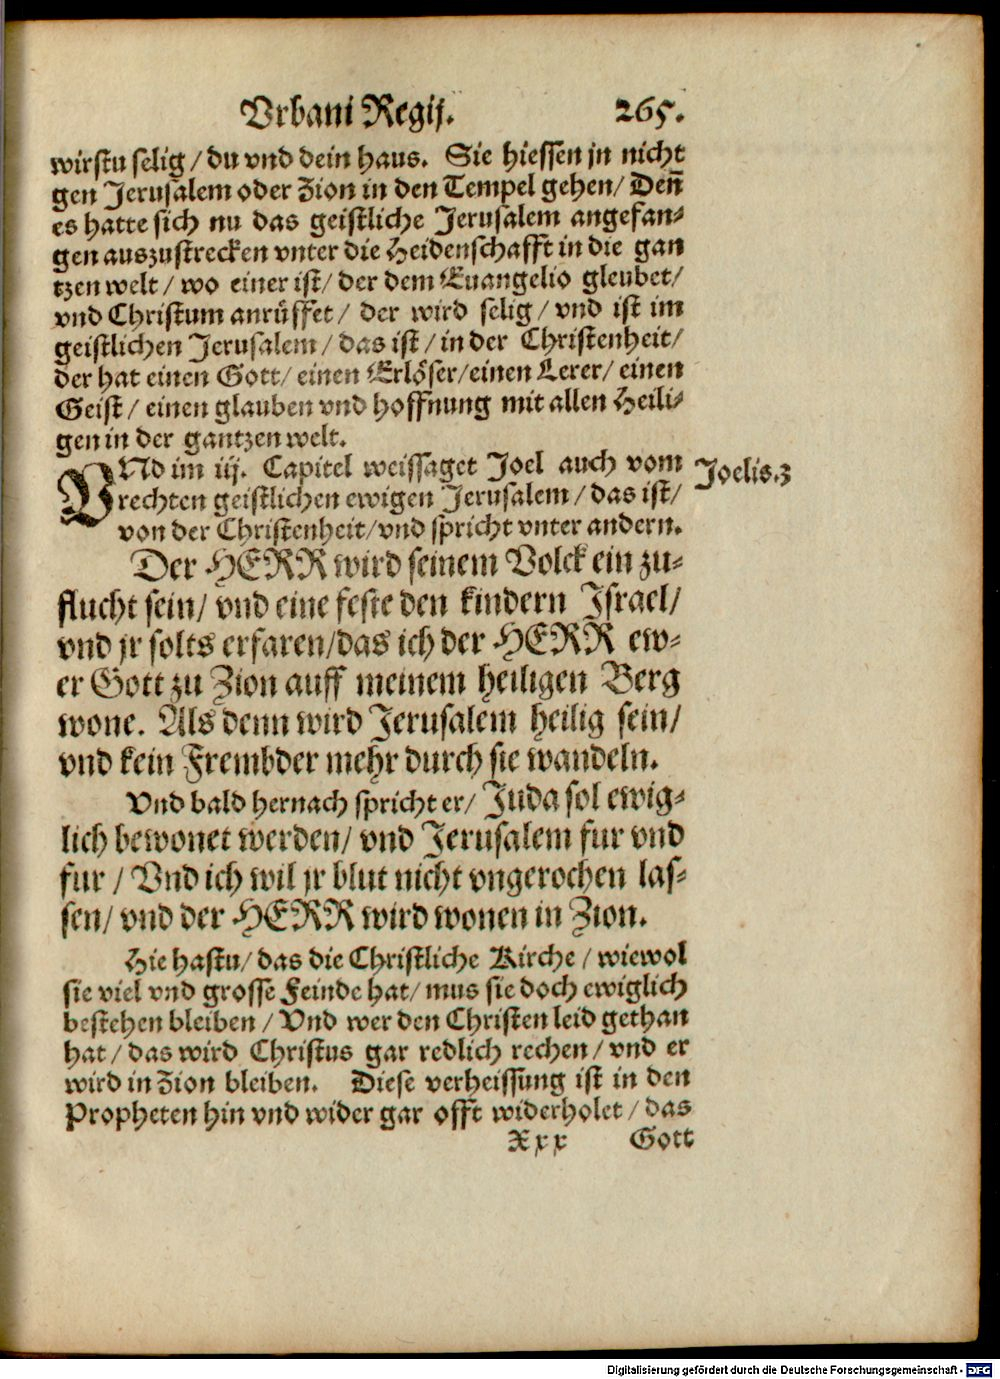 Vrbani Regij. 265.
wirstu selig / du vnd dein haus. Sie hiessen jn nicht
gen Jerusalem oder Zion in den Tempel gehen / Deñ
es hatte sich nu das geistliche Jerusalem angefan-
gen auszustrecken vnter die Heidenschafft in die gan
tzen welt / wo einer ist / der dem Euangelio gleubet /
vnd Christum anrüffet / der wird selig / vnd ist im
geistlichen Jerusalem / das ist / in der Christenheit /
der hat einen Gott / einen Erlöser / einen Lerer / einen
Geist / einen glauben vnd hoffnung mit allen Heili-
gen in der gantzen welt.
VNd im iij. Capitel weissaget Joel auch vom
rechten geistlichen ewigen Jerusalem / das ist /
von der Christenheit / vnd spricht vnter andern.
Joelis.3
Der HERR wird seinem Volck ein zu-
flucht sein / vnd eine feste den kindern Israel /
vnd jr solts erfaren / das ich der HERR ew-
er Gott zu Zion auff meinem heiligen Berg
wone. Als denn wird Jerusalem heilig sein /
vnd kein Frembder mehr durch sie wandeln.
Vnd bald hernach spricht er / Juda sol ewig-
lich bewonet werden / vnd Jerusalem fur vnd
fur / Vnd ich wil jr blut nicht vngerochen las-
sen / vnd der HERR wird wonen in Zion.
Hie hastu / das die Christliche Kirche / wiewol
sie viel vnd grosse Feinde hat / mus sie doch ewiglich
bestehen bleiben / Vnd wer den Christen leid gethan
hat / das wird Christus gar redlich rechen / vnd er
wird in Zion bleiben. Diese verheissung ist in den
Propheten hin vnd wider gar offt widerholet / das
Xxx Gott
Digitalisierung gefördert durch die Deutsche Forschungsgemeinschaft - DFG